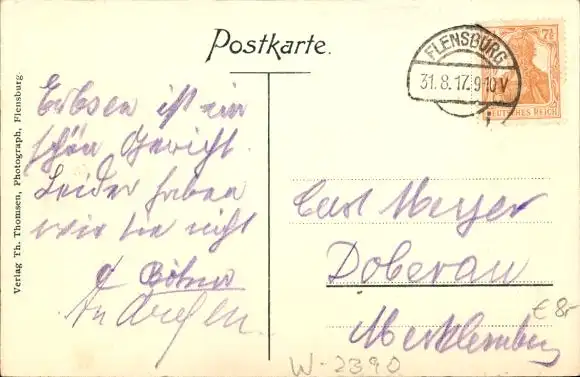 Postkarte.
FLENSBURG
31.8.17.9-10V
7½
DEUTSCHES REICH
Verlag Th. Thomsen, Photograph, Flensburg.
Erbsen ist ein
schön Gericht.
Leider haben
wir sie nicht
Carl Meyer
Doberan
Mecklenburg
€ 8,-
W-2390